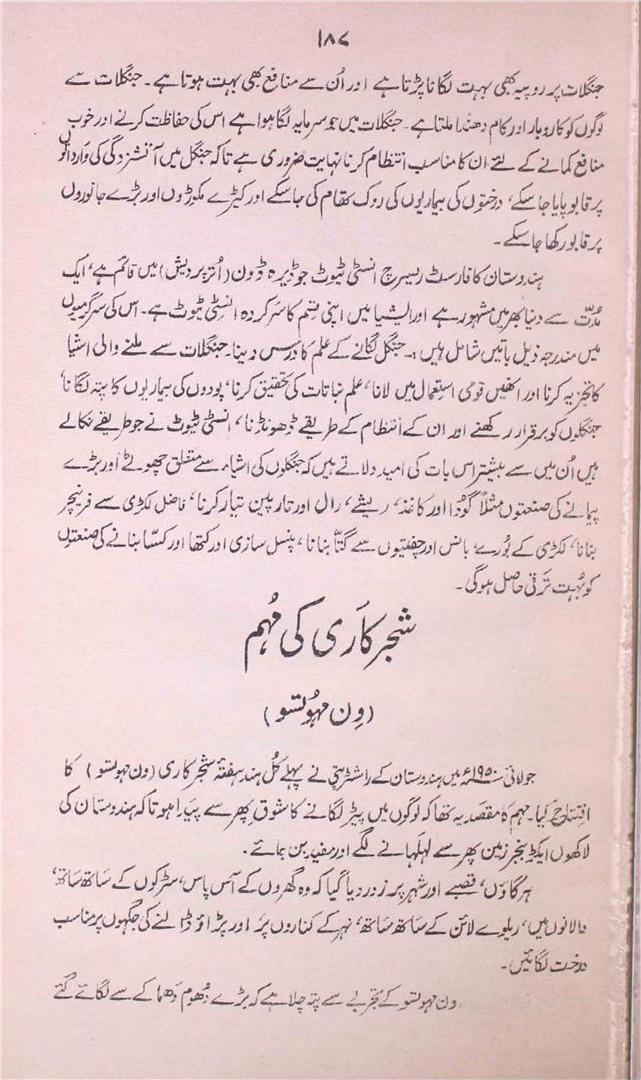 ۱۸۷
جنگلات پر روپیہ بھی بہت لگانا پڑتا ہے اور اُن سے منافع بھی بہت ہوتا ہے۔ جنگلات سے
لوگوں کو کاروبار اور کام دھندا ملتا ہے۔ جنگلات میں جو سرمایہ لگا ہوا ہے اس کی حفاظت کرنے اور خوب
منافع کمانے کے لئے ان کا مناسب انتظام کرنا نہایت ضروری ہے تاکہ جنگل میں آتشزدگی کی وارداتوں
پر قابو پایا جا سکے، درختوں کی بیماریوں کی روک تھام کی جا سکے اور کیڑے مکوڑوں اور بڑے جانوروں
پر قابو رکھا جا سکے۔
ہندوستان کا فارسٹ ریسرچ انسٹی ٹیوٹ جو ڈیرہ ڈون (اُتر پردیش) میں قائم ہے، ایک
مُدّت سے دنیا بھر میں مشہور ہے اور ایشیا میں اپنی قِسم کا سرکردہ انسٹی ٹیوٹ ہے۔ اس کی سرگرمیوں
میں مندرجہ ذیل باتیں شامل ہیں:۔ جنگل لگانے کے علم کا درس دینا۔ جنگلات سے ملنے والی اشیا
کا تجزیہ کرنا اور انھیں قومی استعمال میں لانا، علم نباتات کی تحقیق کرنا، پودوں کی بیماریوں کا پتہ لگانا،
جنگلوں کو برقرار رکھنے اور ان کے انتظام کے طریقے ڈھونڈنا، انسٹی ٹیوٹ نے جو طریقے نکالے
ہیں اُن میں سے بیشتر اس بات کی امید دلاتے ہیں کہ جنگلوں کی اشیاء سے متعلق چھوٹے اور بڑے
پیمانے کی صنعتوں مثلاً گودا اور کاغذ، ریشے، رال اور تارپین تیار کرنا، فاضل لکڑی سے فرنیچر
بنانا، لکڑی کے بُورے، بانس اور چفتیوں سے گتّا بنانا، پنسل سازی اور کتھا اور کسّا بنانے کی صنعتوں
کو بہت ترقی حاصل ہوگی۔
شجر کاری کی مُہم
(وِن مہوتسو)
جولائی ۱۹۵۰ء میں ہندوستان کے راشٹرپتی نے پہلے کُل ہند ہفتۂ شجر کاری (ون مہوتسو) کا
افتتاح کیا۔ مہم کا مقصد یہ تھا کہ لوگوں میں پیڑ لگانے کا شوق پھر سے پیدا ہو تا کہ ہندوستان کی
لاکھوں ایکڑ بنجر زمین پھر سے لہلہانے لگے اور مفید بن جائے۔
ہر گاؤں، قصبے اور شہر پر زور دیا گیا کہ وہ گھروں کے آس پاس، سڑکوں کے ساتھ ساتھ،
دالانوں میں، ریلوے لائن کے ساتھ ساتھ، نہر کے کناروں پر اور پڑاؤ ڈالنے کی جگہوں پر مناسب
درخت لگائیں۔
ون مہوتسو کے تجربے سے پتہ چلا ہے کہ بڑے دُھوم دَھماکے سے لگائے گئے